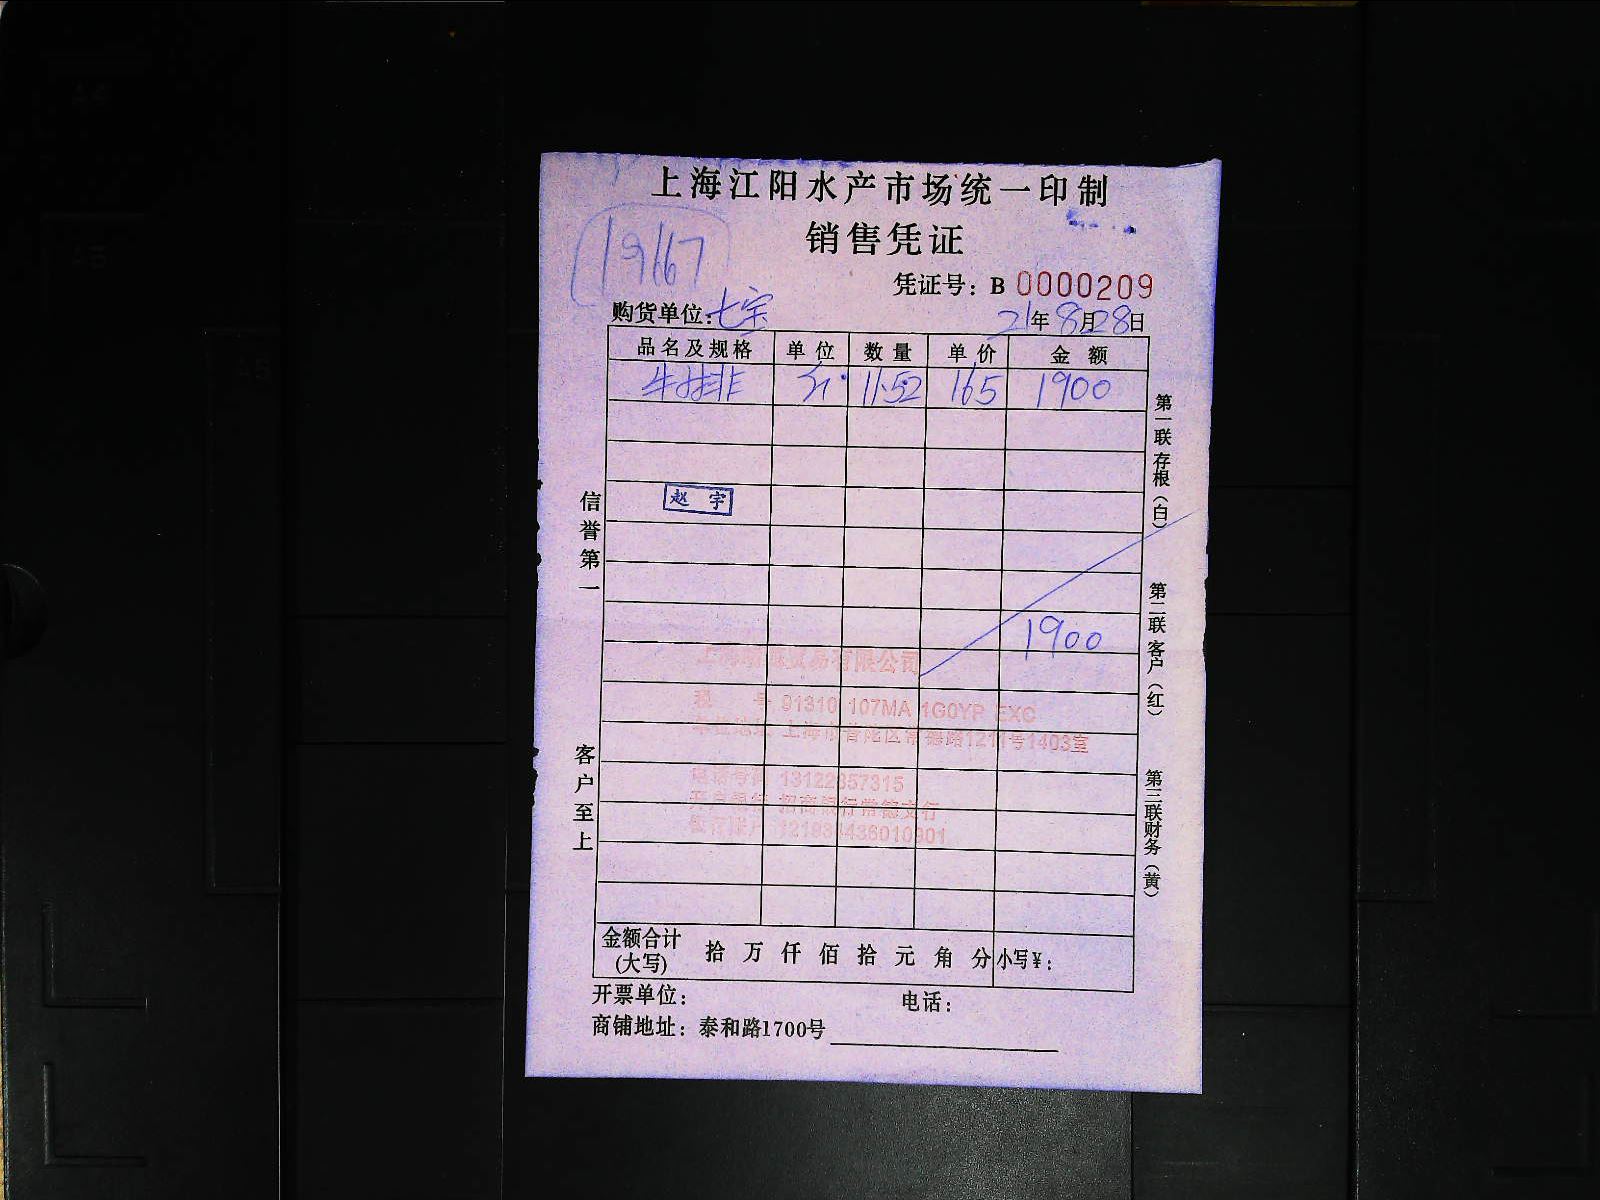 上海江阳水产市场统一印制
销售凭证
19167
凭证号：B 0000209
购货单位：七宗 21年8月28日
品名及规格 单位 数量 单价 金额
牛排 斤 11.52 165 1900
赵宇
1900
贸易有限公司
税 号 91310 107MA 1G0YP EXC
单位地址 上海市普陀区常德路1211号1403室
电话号码 13122857315
开户银行 招商银行常德支行
银行账户
金额合计(大写) 拾 万 仟 佰 拾 元 角 分 小写¥：
开票单位： 电话：
商铺地址：泰和路1700号
信誉第一
客户至上
第一联 存根（白）
第二联 客户（红）
第三联 财务（黄）